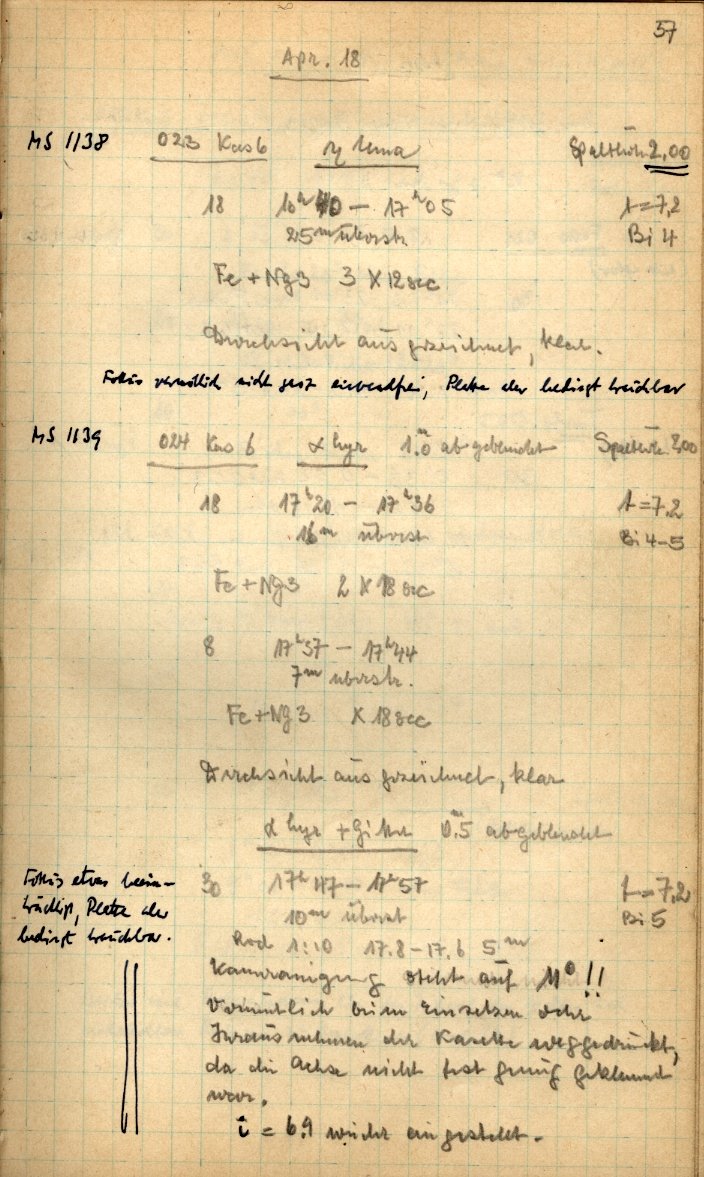 57
Apr. 18
MS 1138 023 Kas 6 η Uma Spalthöhe 2,00
18 16h 40 – 17h 05 t=7,2
25m überstr. Bi 4
Fe + Ng3 3 X 12 sec
Durchsicht ausgezeichnet, klar.
Fokus vermutlich nicht ganz einwandfrei, Platte aber bedingt brauchbar
MS 1139 024 Kas 6 α Lyr 1.m0 abgeblendet Spalthöhe 2,00
18 17h 20 – 17h 36 t=7,2
16m überstr. Bi 4–5
Fe + Ng3 2 X 18 sec
8 17h 37 – 17h 44
7m überstr.
Fe + Ng3 X 18 sec
Durchsicht ausgezeichnet, klar
α Lyr + Gitter 0.m5 abgeblendet
30 17h 47 – 17h 57 t=7,2
10m überst. Bi 5
Fokus etwas beein-
trächtigt, Platte aber
bedingt brauchbar.
1:10 17.8–17.6 5m
Kameraneigung steht auf 11°!!
Vermutlich beim Einsetzen oder
Herausnehmen der Kasette weggedrückt,
da die Achse nicht fest genug geklemmt
war.
i = 6.9 wieder eingestellt.